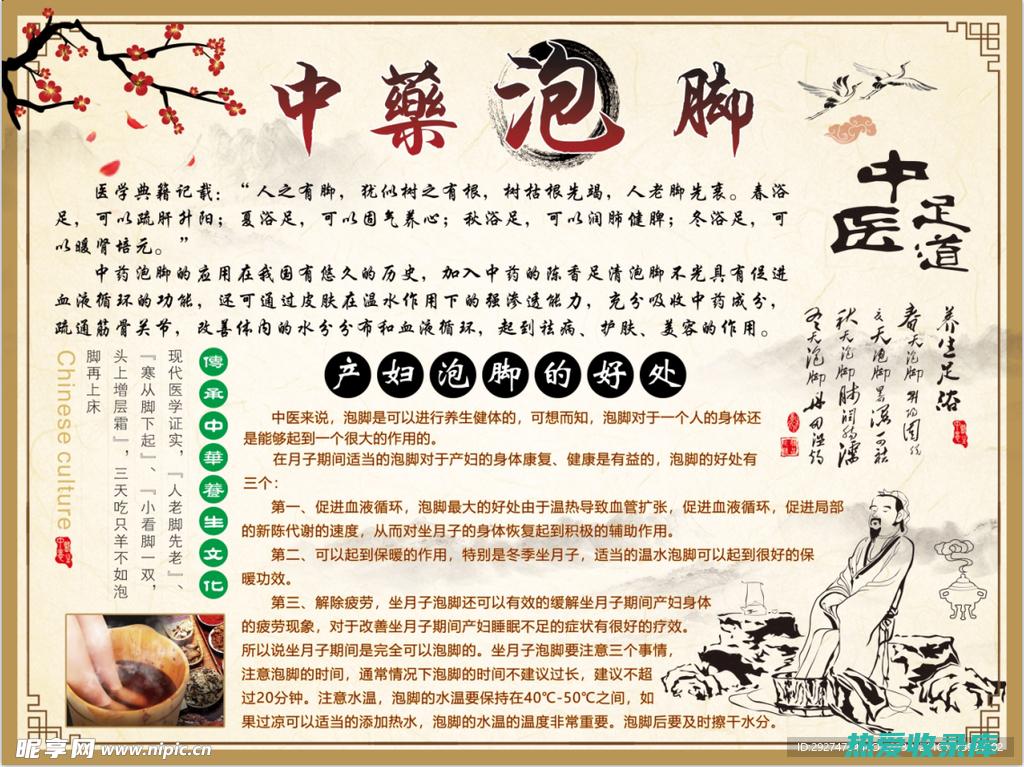 中藥泡脚
医学典籍记载：“人之有脚，犹似树之有根，树枯根先竭，人老脚先衰。春浴
足，可以疏肝升阳；夏浴足，可以固气养心；秋浴足，可以润肺健脾；冬浴足，可
以暖肾培元。”
中药泡脚的应用在我国有悠久的历史，加入中药的陈香足清泡脚不光具有促进
血液循环的功能，还可通过皮肤在温水作用下的强渗透能力，充分吸收中药成分，
疏通筋骨关节，改善体内的水分分布和血液循环，起到祛病、护肤、美容的作用。
中医
足道
养生足浴
春天泡脚
冬天泡脚丹田温灼
傳承中華養生文化
现代医学证实，『人老脚先老』、
『寒从脚下起』、『小看脚一双，
头上增层霜』，三天吃只羊不如泡
脚再上床
Chinese culture
产妇泡脚的好处
中医来说，泡脚是可以进行养生健体的，可想而知，泡脚对于一个人的身体还
是能够起到一个很大的作用的。
在月子期间适当的泡脚对于产妇的身体康复、健康是有益的，泡脚的好处有
三个：
第一、促进血液循环，泡脚最大的好处由于温热导致血管扩张，促进血液循环，促进局部
的新陈代谢的速度，从而对坐月子的身体恢复起到积极的辅助作用。
第二、可以起到保暖的作用，特别是冬季坐月子，适当的温水泡脚可以起到很好的保
暖功效。
第三、解除疲劳，坐月子泡脚还可以有效的缓解坐月子期间产妇身体
的疲劳现象，对于改善坐月子期间产妇睡眠不足的症状有很好的疗效。
所以说坐月子期间是完全可以泡脚的。坐月子泡脚要注意三个事情，
注意泡脚的时间，通常情况下泡脚的时间不建议过长，建议不超
过20分钟。注意水温，泡脚的水温要保持在40℃-50℃之间，如
果过凉可以适当的添加热水，泡脚的水温的温度非常重要。泡脚后要及时擦干水分。
昵享网 www.nipic.cn
热爱收录库